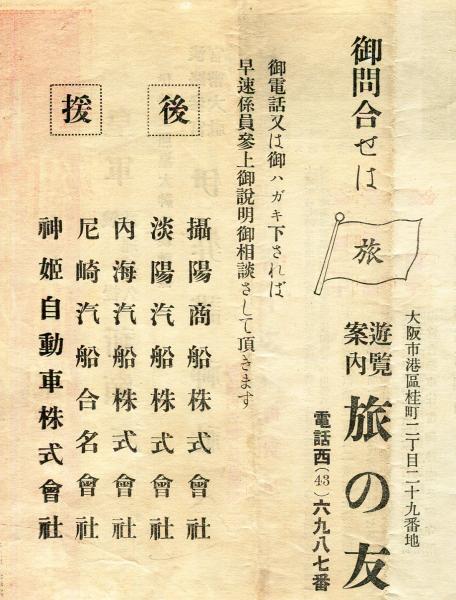 御問合せは
旅
大阪市港區桂町二丁目二十九番地
遊覽
案內
旅の友
電話西(43)六九八七番
御電話又は御ハガキ下されば
早速係員參上御說明御相談さして頂きます
後援
攝陽商船株式會社
淡陽汽船株式會社
內海汽船株式會社
尼崎汽船合名會社
神姬自動車株式會社